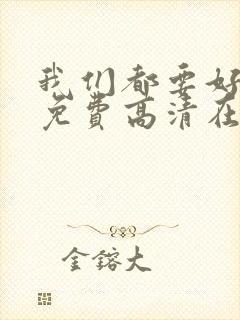 我们都要好
免费高清在
金镕大